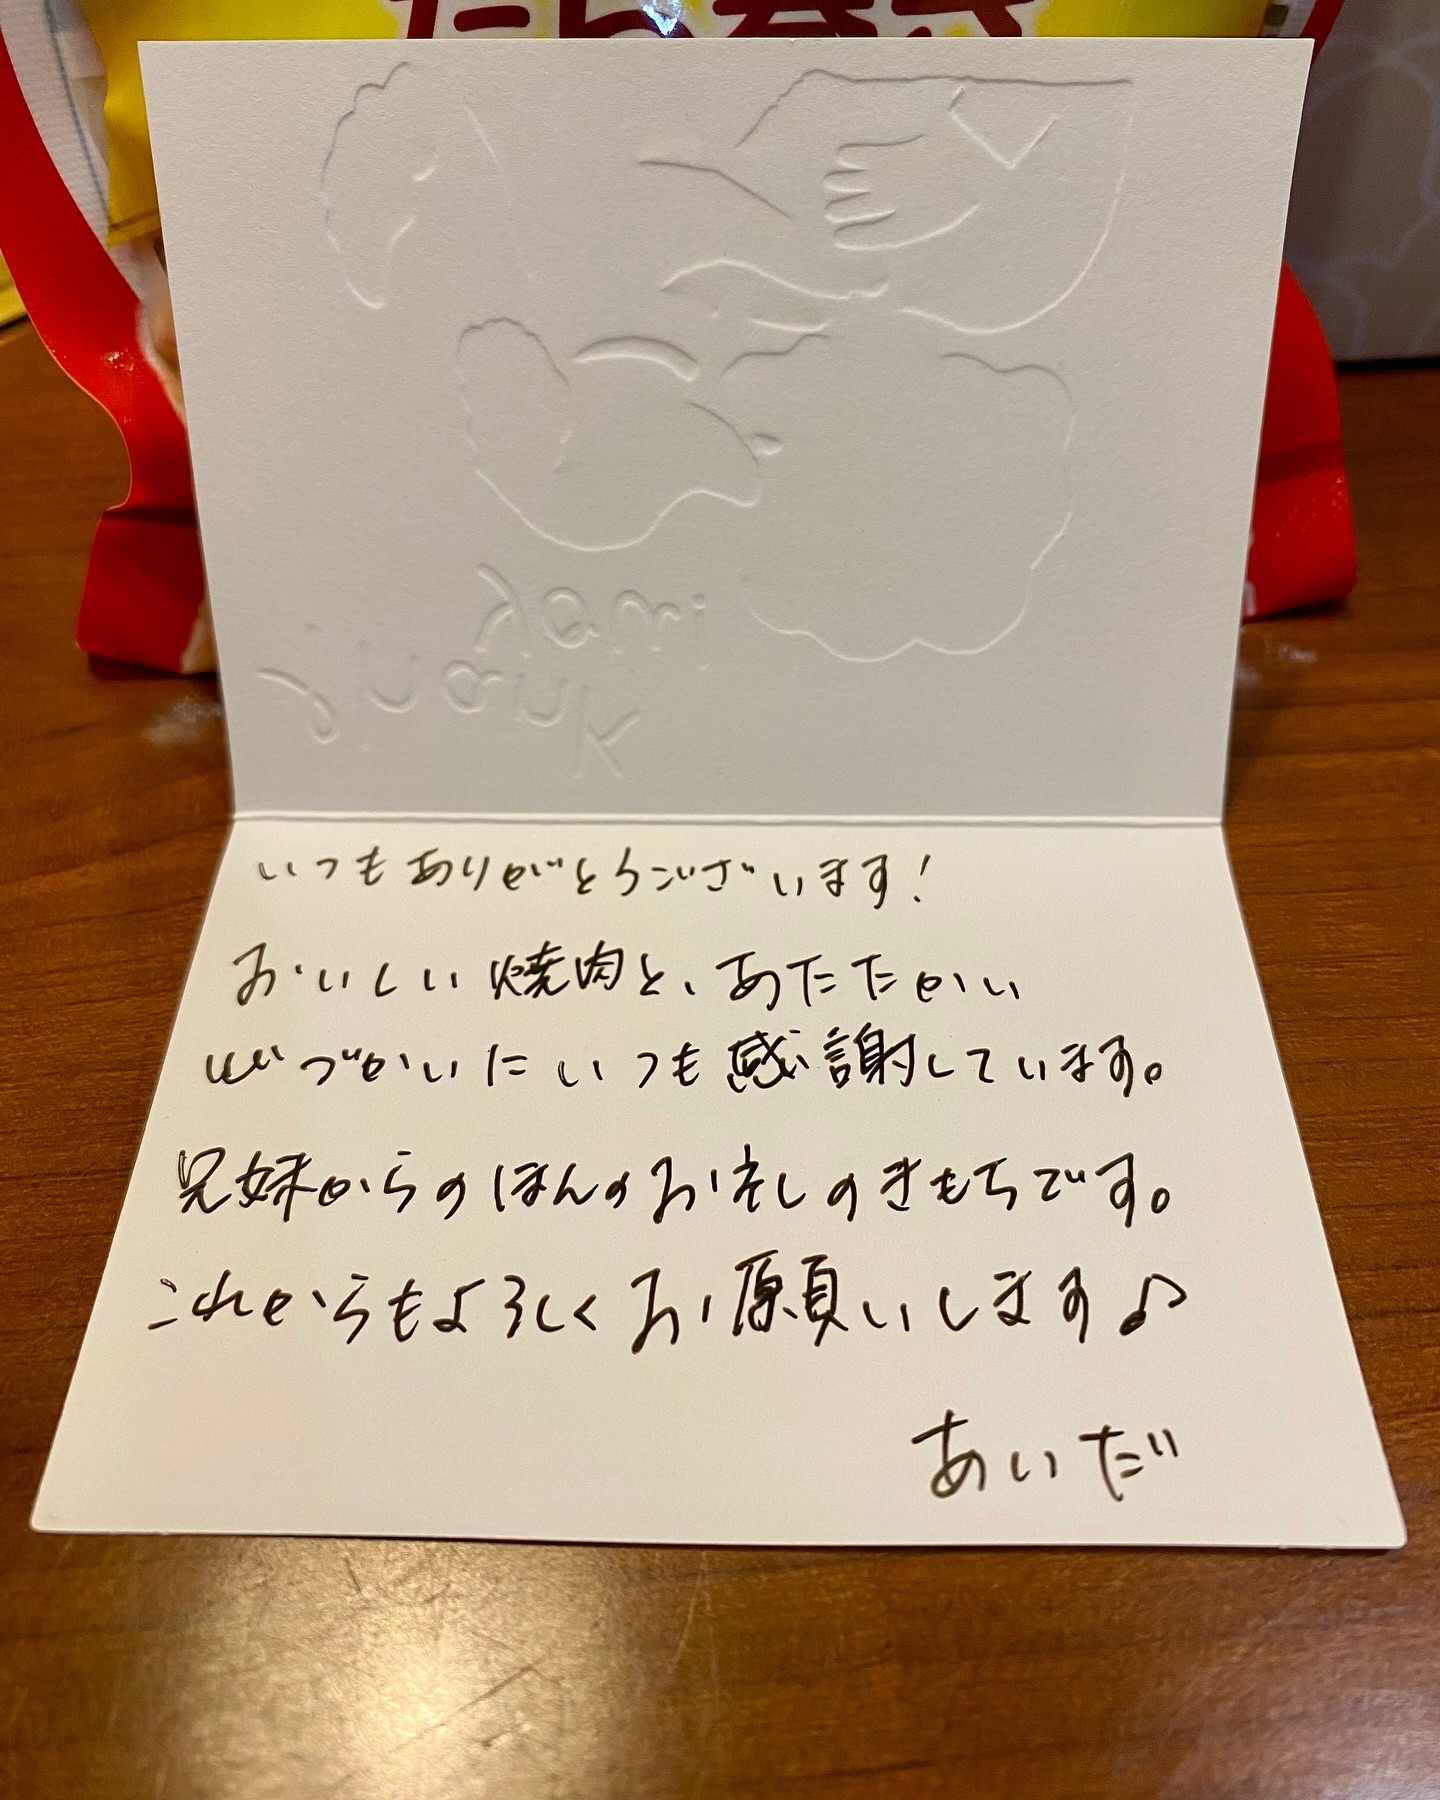 いつもありがとうございます！
おいしい焼肉と、あたたかい
心づかいにいつも感謝しています。
兄妹からのほんのお礼のきもちです。
これからもよろしくお願いします♪
あいだ